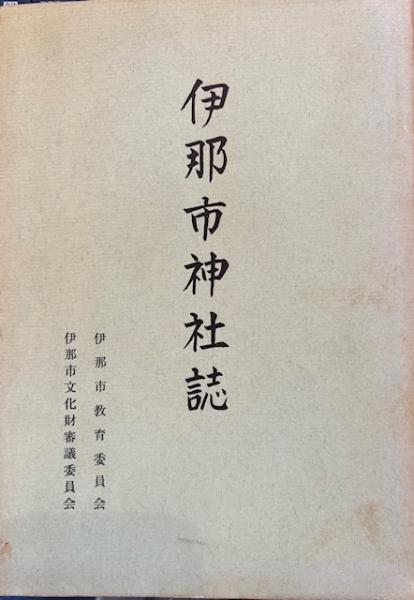 伊那市神社誌
伊那市教育委員会
伊那市文化財審議委員会